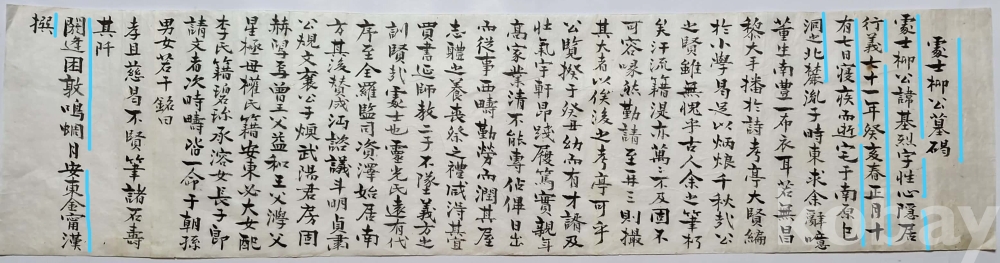 處士柳公墓碣
處士柳公諱基烈字性心隱居
行義七十一年癸亥春正月十
有七日寢疾而逝宅于南原巳
洞之北麓胤子時東求余辭噫
董生南豊一布衣耳若無昌
黎大手播於詩考亭大賢編
於小學曷足以炳烺千秋哉公
之賢雖無愧乎古人余之筆朽
矣汗流籍湜亦萬〻不及固不
可容喙然勤請至再三則撮
其大者以俟後之考亭可乎
公覽揆于癸丑幼而有才諝及
壯氣宇軒昂踐履篤實親年
高家業清不能專佔俾日出
而從事西疇勤勞而潤其屋
志體之養喪祭之禮咸得其宜
買書延師教二子不墜義方之
訓賢哉處士也靈光氏遠有代
序至全羅監司濱澤始居南
方其後贊成涵諮議斗明貞肅
公規文襄公子煥武陽君房固
赫舃再曾王父益和王父澪父
星極母權氏籍安東必大女配
李氏籍碧珍承溶女長子郎
請文者次時疇階一命于朝孫
男女若干銘曰
孝且慈曷不賢筆諸石壽
其阡
閼逢困敦鳴蜩月安東金甯漢
撰
ebay